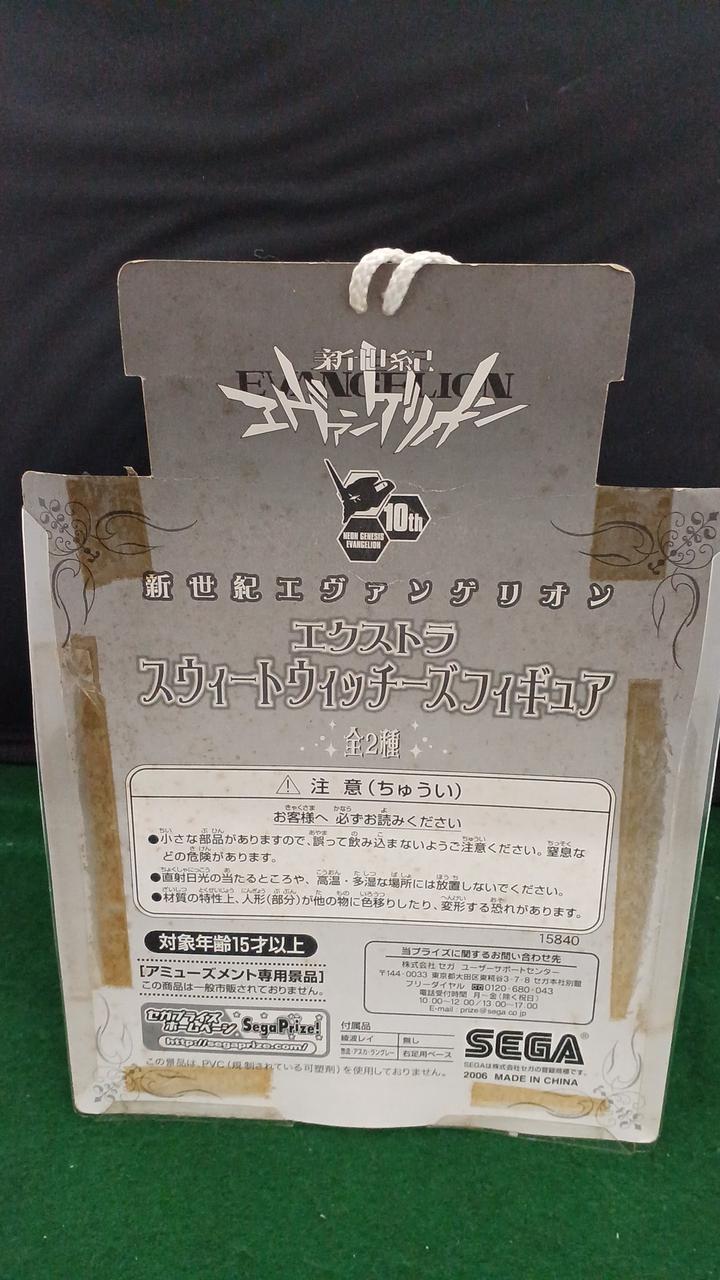 新世紀
EVANGELION
エヴァンゲリオン
10th
NEON GENESIS
EVANGELION
新世紀エヴァンゲリオン
エクストラ
スウィートウィッチーズフィギュア
全2種
⚠ 注意(ちゅうい)
お客様へ 必ずお読みください
●小さな部品がありますので、誤って飲み込まないようご注意ください。窒息な
どの危険があります。
●直射日光の当たるところや、高温・多湿な場所には放置しないでください。
●材質の特性上、人形(部分)が他の物に色移りしたり、変形する恐れがあります。
15840
対象年齢15才以上
[アミューズメント専用景品]
この商品は一般市販されておりません。
セガプライズ
ホームページ SegaPrize!
http://segaprize.com/
当プライズに関するお問い合わせ先
株式会社 セガ ユーザーサポートセンター
〒144-0033 東京都大田区東糀谷3-7-8 セガ本社別館
フリーダイヤル 0120-680-043
電話受付時間 月~金(除く祝日)
10:00~12:00/13:00~17:00
E-mail: prize@sega.co.jp
付属品
綾波レイ 無し
惣流・アスカ・ラングレー 右足用ベース
SEGA®
SEGAは株式会社セガの登録商標です。
2006 MADE IN CHINA
この景品は、PVC(規制されている可塑剤)を使用しておりません。